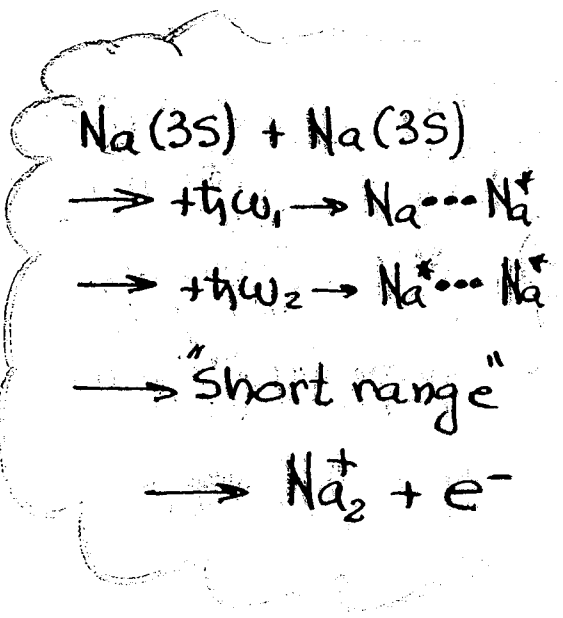 Na(3S) + Na(3S)
→ +ħω₁ → Na•••Na*
→ +ħω₂ → Na*•••Na*
→ "Short range"
→ Na₂⁺ + e⁻